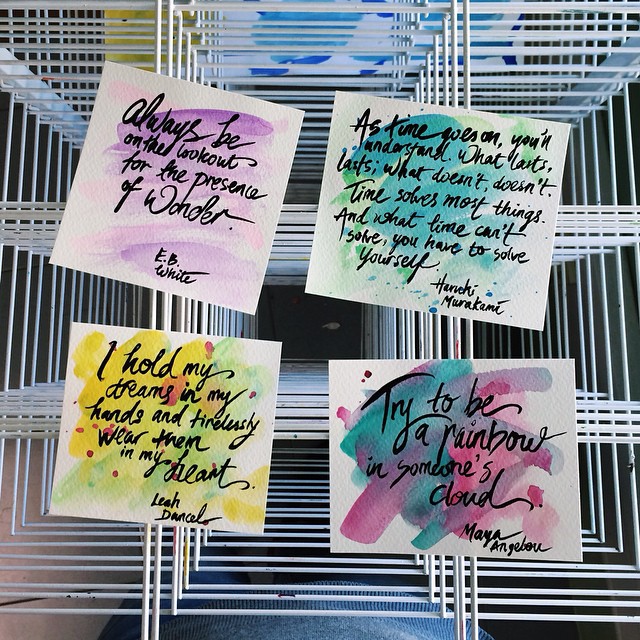 Always be
on the lookout
for the presence
of Wonder.
E.B.
White
As time goes on, you'll
understand. What lasts,
lasts; what doesn't, doesn't.
Time solves most things.
And what time can't
solve, you have to solve
yourself.
Haruki
Murakami
I hold my
dreams in my
hands and tirelessly
wear them
in my heart.
Leah
Dancel
Try to be
a rainbow
in someone's
cloud.
Maya
Angelou